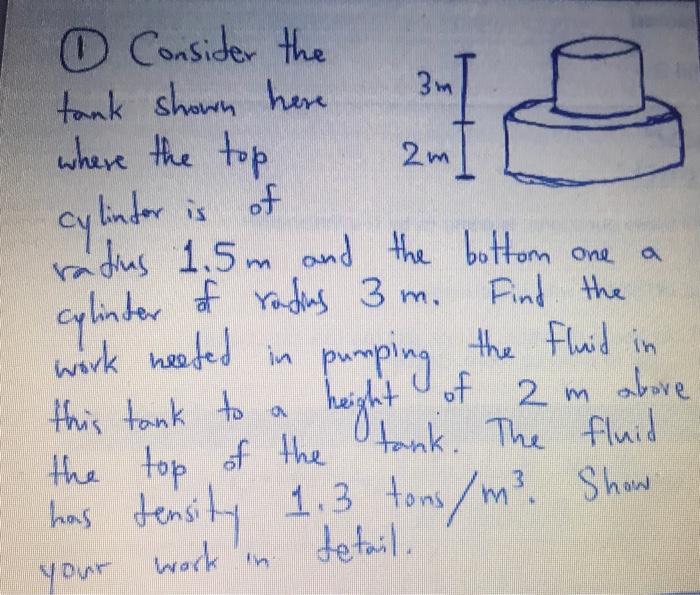 ① Consider the
tank shown here
where the top
cylinder is of
radius 1.5 m and the bottom one a
cylinder of radius 3 m. Find the
work needed in pumping the fluid in
this tank to a height of 2 m above
the top of the tank. The fluid
has density 1.3 tons/m³. Show
your work in detail.
3m
2m